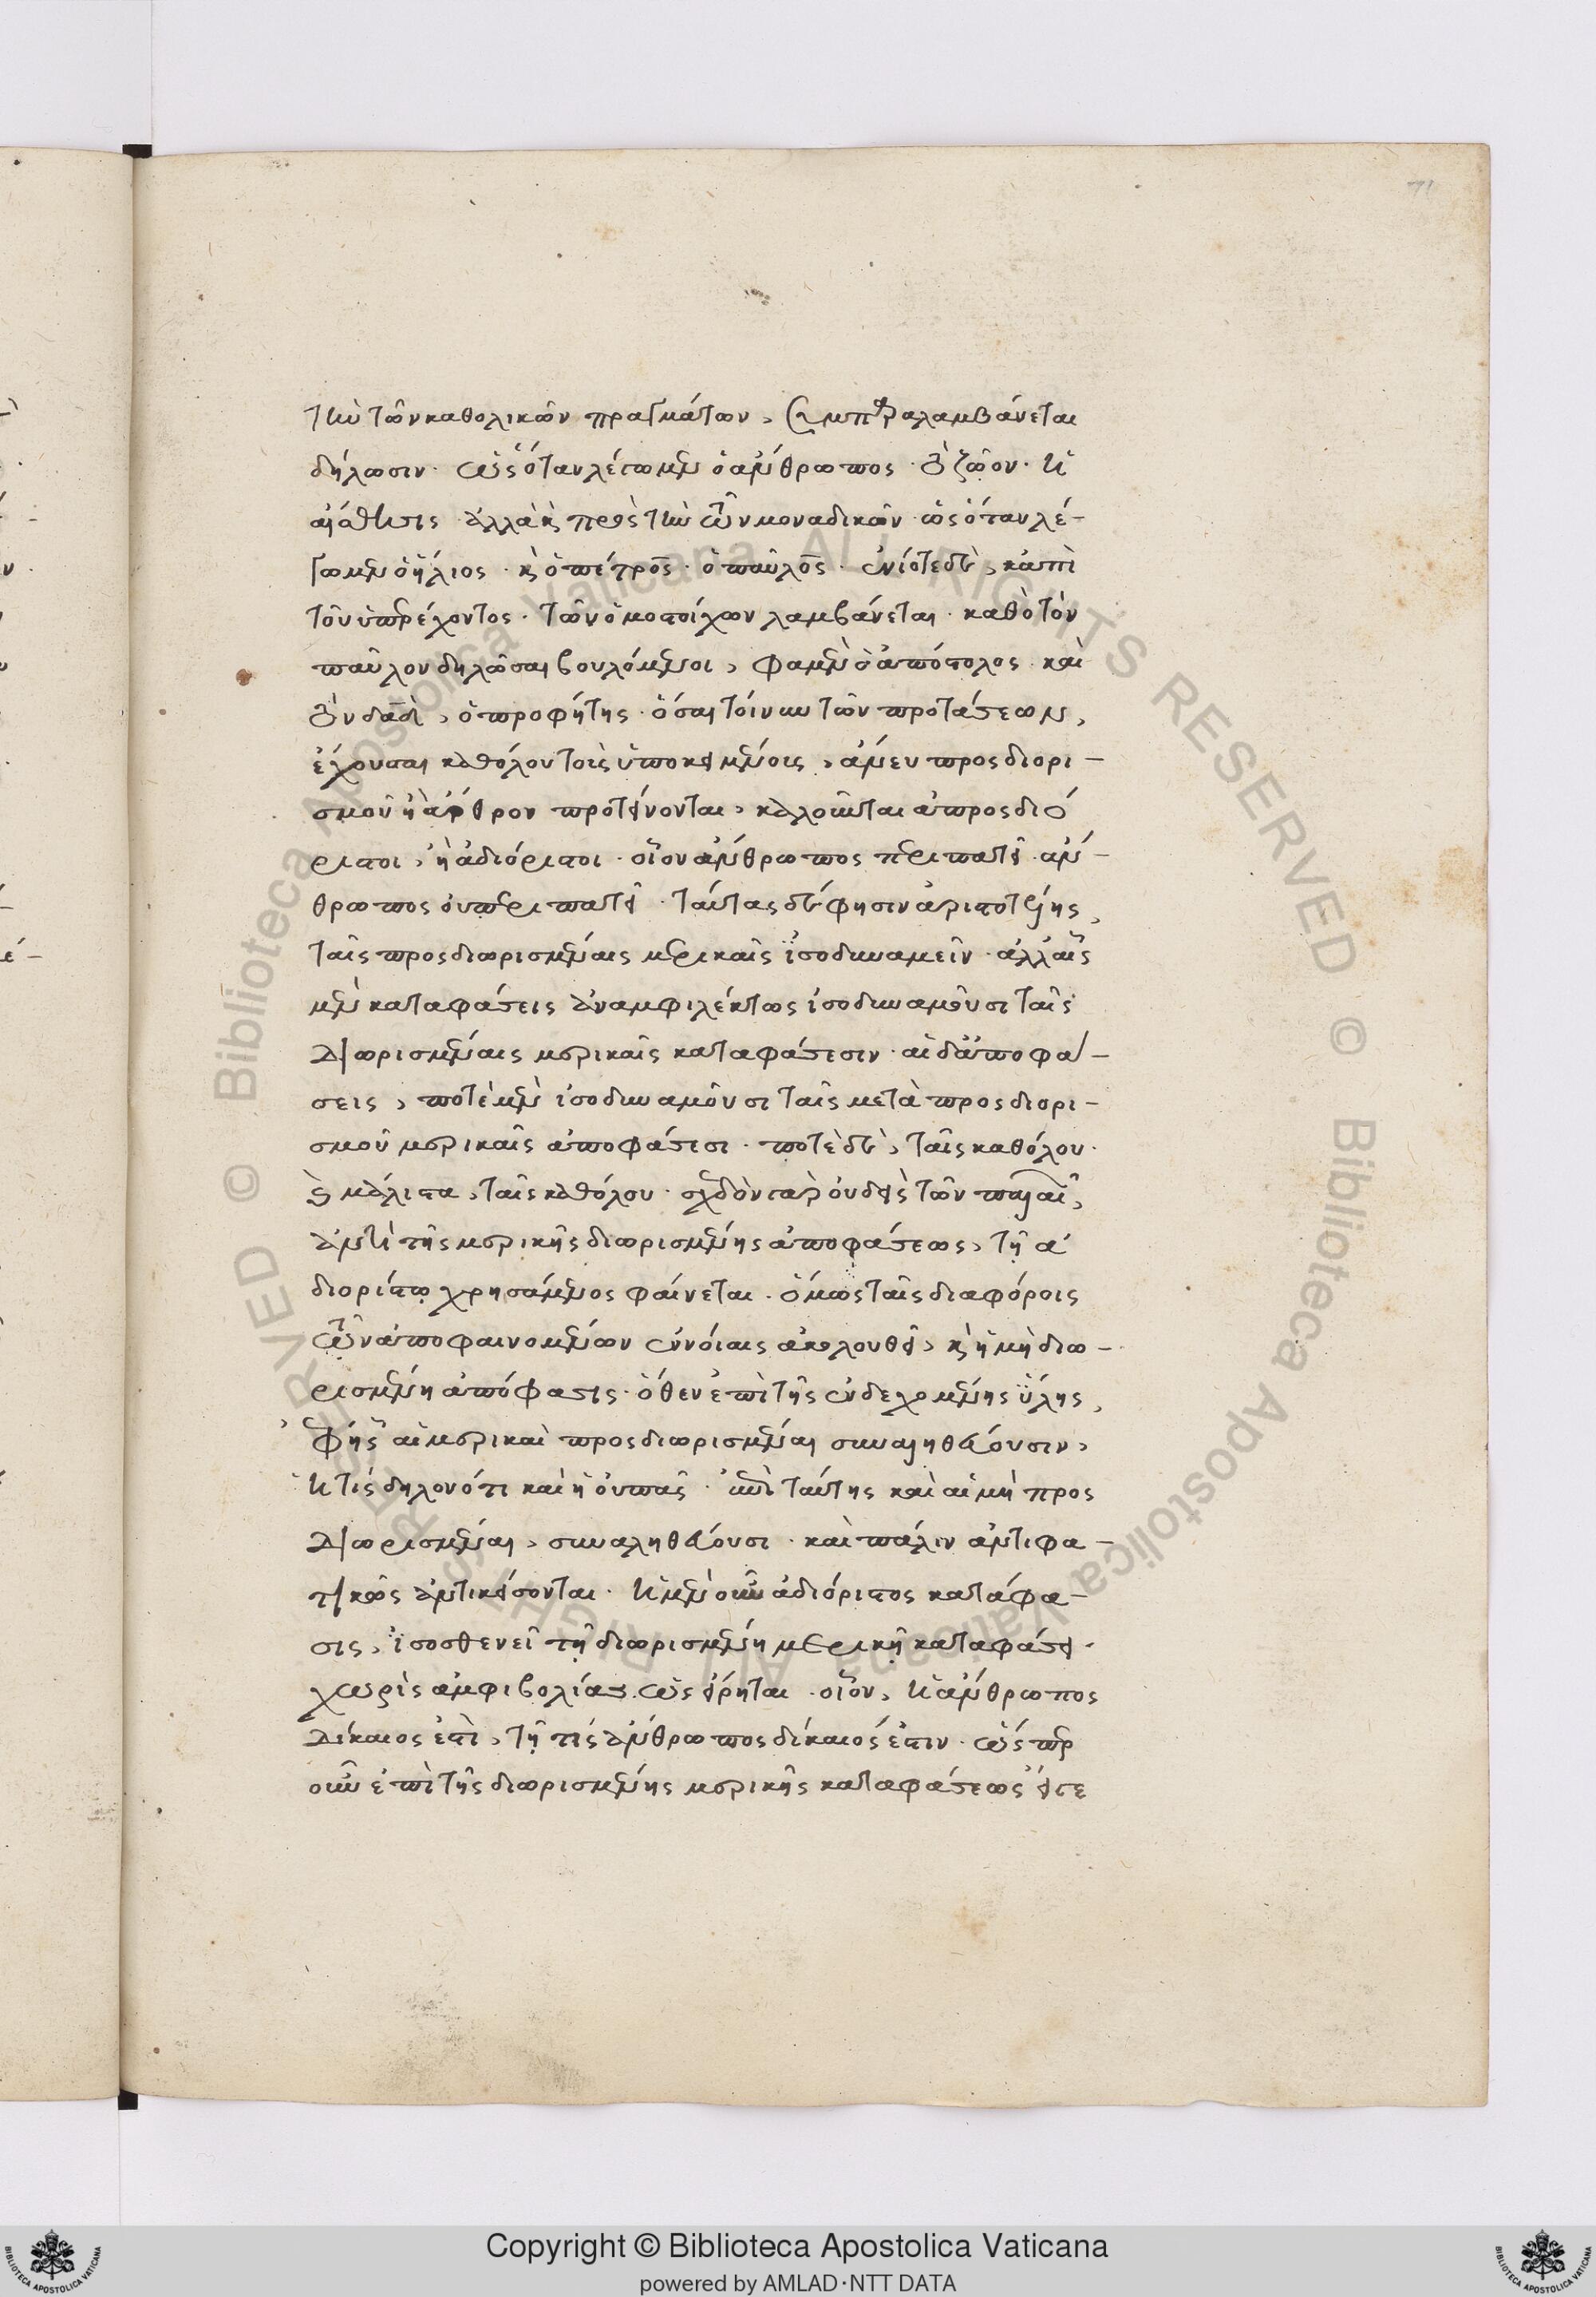 71
τὴν τῶν καθολικῶν πραγμάτων, συμπαραλαμβάνεται
δήλωσιν · ὡς ὅταν λέγωμεν ὁ ἄνθρωπος · τὸ ζῶον · ἡ
αἴσθησις · ἀλλὰ καὶ πρὸς τὴν τῶν μοναδικῶν · ὡς ὅταν λέ-
γωμεν ὁ ἥλιος · καὶ ὁ πέτρος · ὁ παῦλος · ἐνίοτε δὲ, κἀπὶ
τοῦ ὑπερέχοντος · τῶν ὁμοστοίχων λαμβάνεται · καθὸ τὸν
παῦλον δηλῶσαι βουλόμενοι, φαμὲν ὁ ἀπόστολος · καὶ
τὸν δαδ, ὁ προφήτης · ὅσαι τοίνυν τῶν προτάσεων,
ἔχουσαι καθόλου τοῖς ὑποκειμένοις, ἄνευ προςδιορι-
σμοῦ ἢ ἄρθρον προτείνονται, καλοῦνται ἀπροςδιό
ριστοι, ἢ ἀδιόριστοι · οἷον ἄνθρωπος περιπατεῖ · ἄν-
θρωπος οὐ περιπατεῖ · ταύτας δέ φησιν ἀριστοτέλης,
ταῖς προςδιωρισμέναις μερικαῖς ἰσοδυναμεῖν · ἀλλ' αἱ
μὲν καταφάσεις ἀναμφιλέκτως ἰσοδυναμοῦσι ταῖς
διωρισμέναις μερικαῖς καταφάσεσιν · αἱ δ' ἀποφά-
σεις, ποτὲ μὲν ἰσοδυναμοῦσι ταῖς μετὰ προςδιορι-
σμοῦ μερικαῖς ἀποφάσεσι · ποτὲ δὲ, ταῖς καθόλου ·
καὶ μάλιστα, ταῖς καθόλου · σχεδὸν γὰρ οὐδεὶς τῶν παλαιῶν,
ἀντὶ τῆς μερικῆς διωρισμένης ἀποφάσεως, τῇ ἀ
διορίστῳ χρησάμενος φαίνεται · ὅμως ταῖς διαφόροις
τῶν ἀποφαινομένων ἐννοίαις ἀκολουθεῖ, καὶ ἡ μὴ διω-
ρισμένη ἀπόφασις · ὅθεν ἐπὶ τῆς ἐνδεχομένης ὕλης,
ἐφ' ἧς αἱ μερικαὶ προςδιωρισμέναι συναληθεύουσιν,
ἡ τίς δηλονότι καὶ ἡ οὐ πᾶς · ἐπὶ ταύτης καὶ αἱ μὴ προς
διωρισμέναι, συναληθεύουσι · καὶ πάλιν ἀντιφα-
τικῶς ἀντικείσονται · ἡ μὲν οὖν ἀδιόριστος κατάφα-
σις, ἰσοσθενεῖ τῇ διωρισμένῃ μερικῇ καταφάσει ·
χωρὶς ἀμφιβολίας · ὡς εἴρηται · οἷον, ἡ ἄνθρωπος
δίκαιος ἐστὶ, τῇ τίς ἄνθρωπος δίκαιός ἐστιν · ὥς περ
οὖν ἐπὶ τῆς διωρισμένης μερικῆς καταφάσεως εἴτε
Copyright © Biblioteca Apostolica Vaticana
powered by AMLAD·NTT DATA